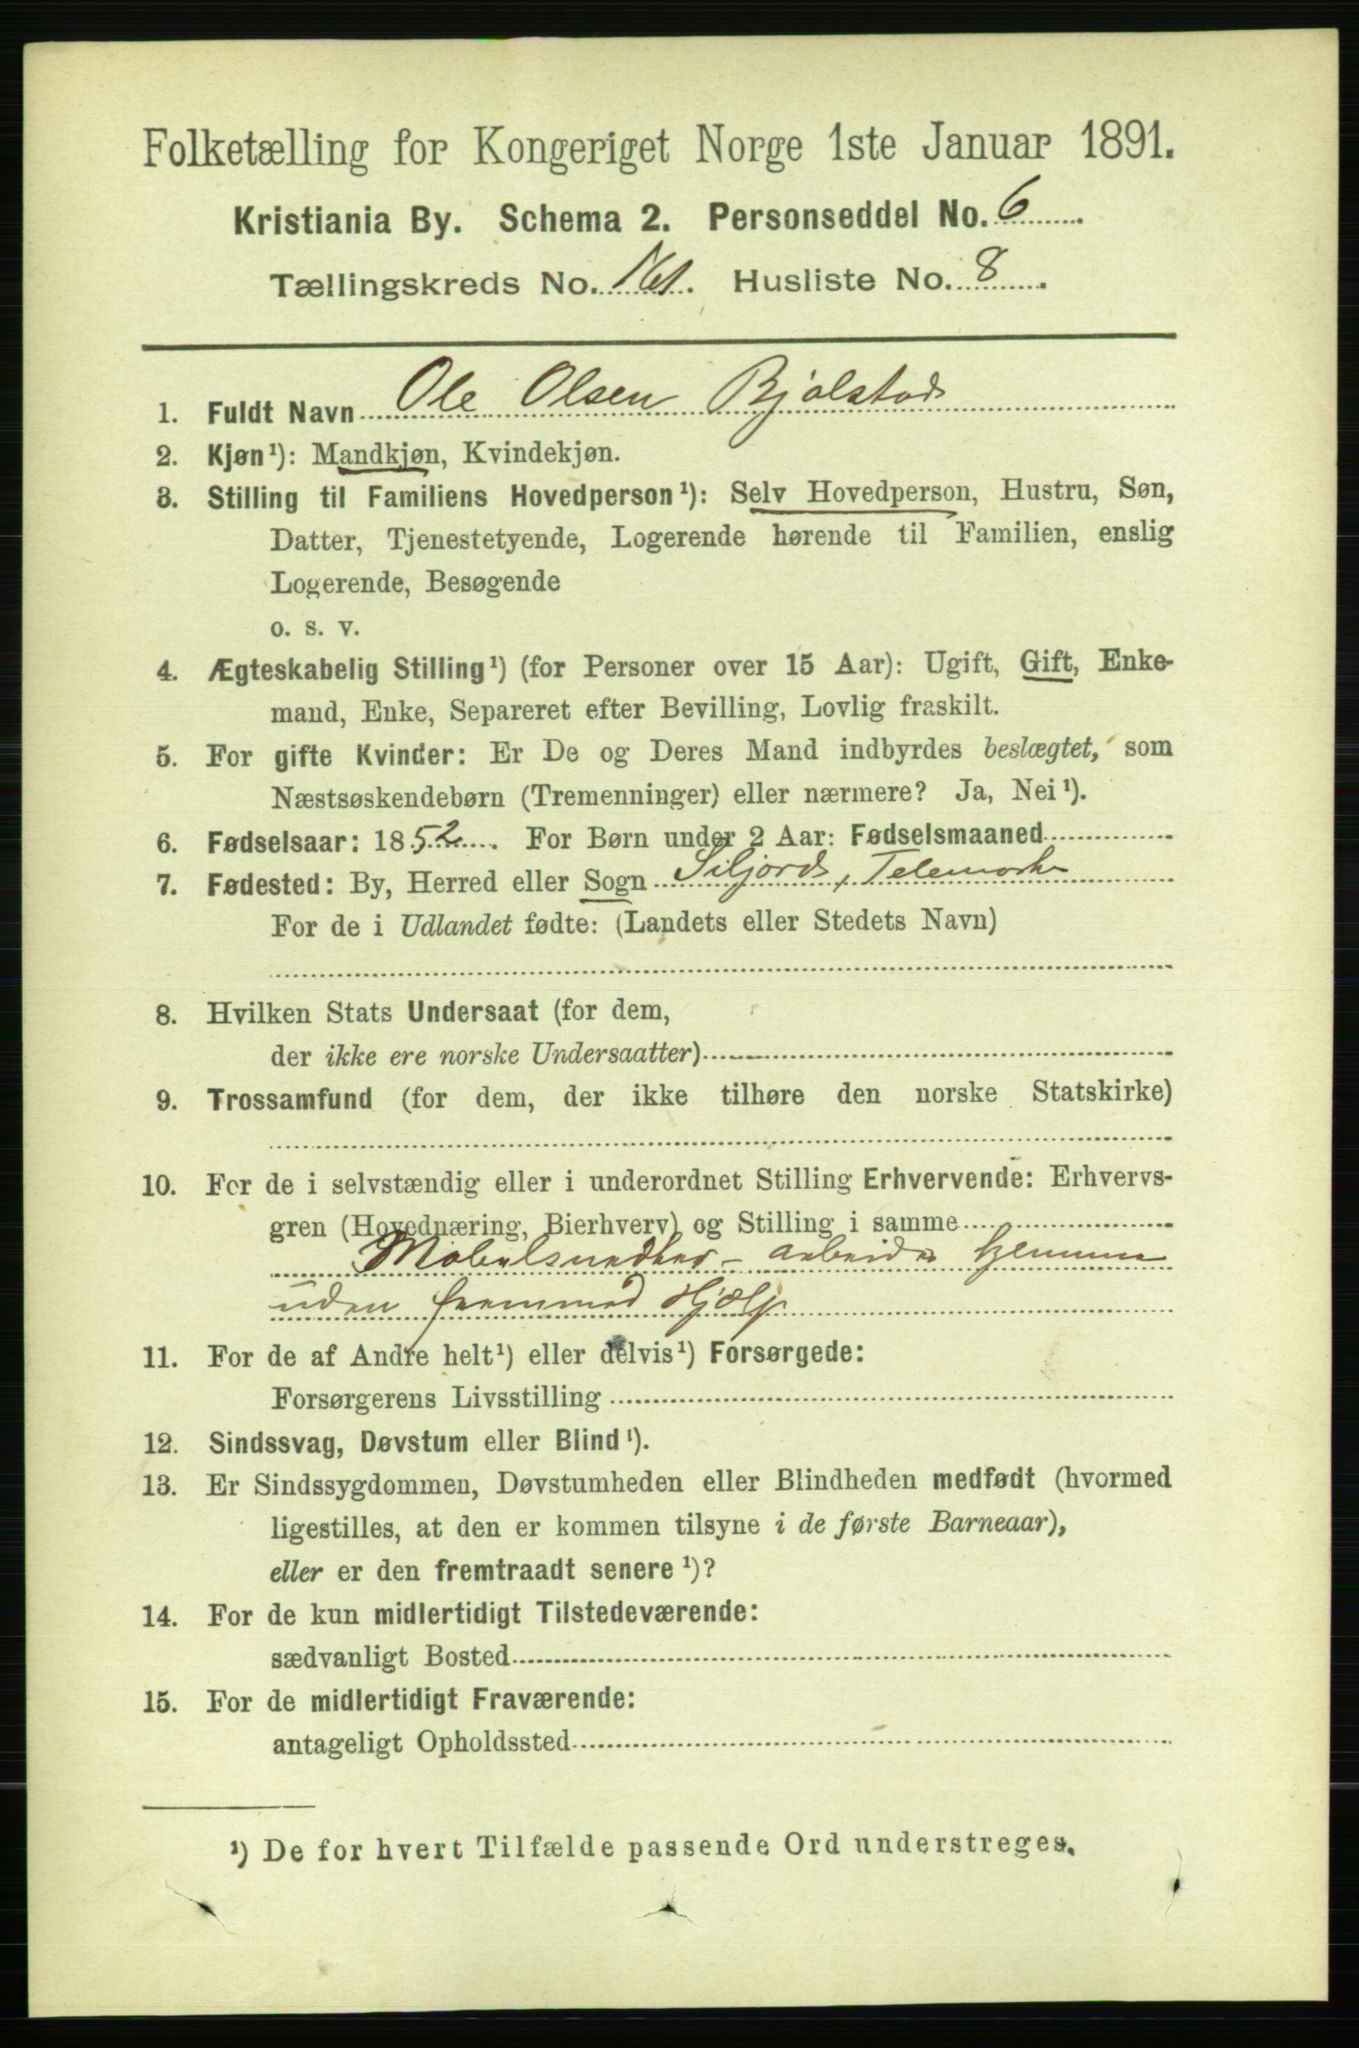 Folketælling for Kongeriget Norge 1ste Januar 1891.
Kristiania By. Schema 2. Personseddel No. 6
Tællingskreds No. 161. Husliste No. 8
1. Fuldt Navn Ole Olsen Bjølstad
2. Kjøn¹): Mandkjøn, Kvindekjøn.
3. Stilling til Familiens Hovedperson¹): Selv Hovedperson, Hustru, Søn,
Datter, Tjenestetyende, Logerende hørende til Familien, enslig
Logerende, Besøgende
o. s. v.
4. Ægteskabelig Stilling¹) (for Personer over 15 Aar): Ugift, Gift, Enke-
mand, Enke, Separeret efter Bevilling, Lovlig fraskilt.
5. For gifte Kvinder: Er De og Deres Mand indbyrdes beslægtet, som
Næstsøskendebørn (Tremenninger) eller nærmere? Ja, Nei¹).
6. Fødselsaar: 1852. For Børn under 2 Aar: Fødselsmaaned
7. Fødested: By, Herred eller Sogn Siljord, Telemarken
For de i Udlandet fødte: (Landets eller Stedets Navn)
8. Hvilken Stats Undersaat (for dem,
der ikke ere norske Undersaatter)
9. Trossamfund (for dem, der ikke tilhøre den norske Statskirke)
10. For de i selvstændig eller i underordnet Stilling Erhvervende: Erhvervs-
gren (Hovednæring, Bierhverv) og Stilling i samme
Møbelsnedker - arbeider hjemme
uden fremmed Hjælp
11. For de af Andre helt¹) eller delvis¹) Forsørgede:
Forsørgerens Livsstilling
12. Sindssvag, Døvstum eller Blind¹).
13. Er Sindssygdommen, Døvstumheden eller Blindheden medfødt (hvormed
ligestilles, at den er kommen tilsyne i de første Barneaar),
eller er den fremtraadt senere¹)?
14. For de kun midlertidigt Tilstedeværende:
sædvanligt Bosted
15. For de midlertidigt Fraværende:
antageligt Opholdssted
¹) De for hvert Tilfælde passende Ord understreges.